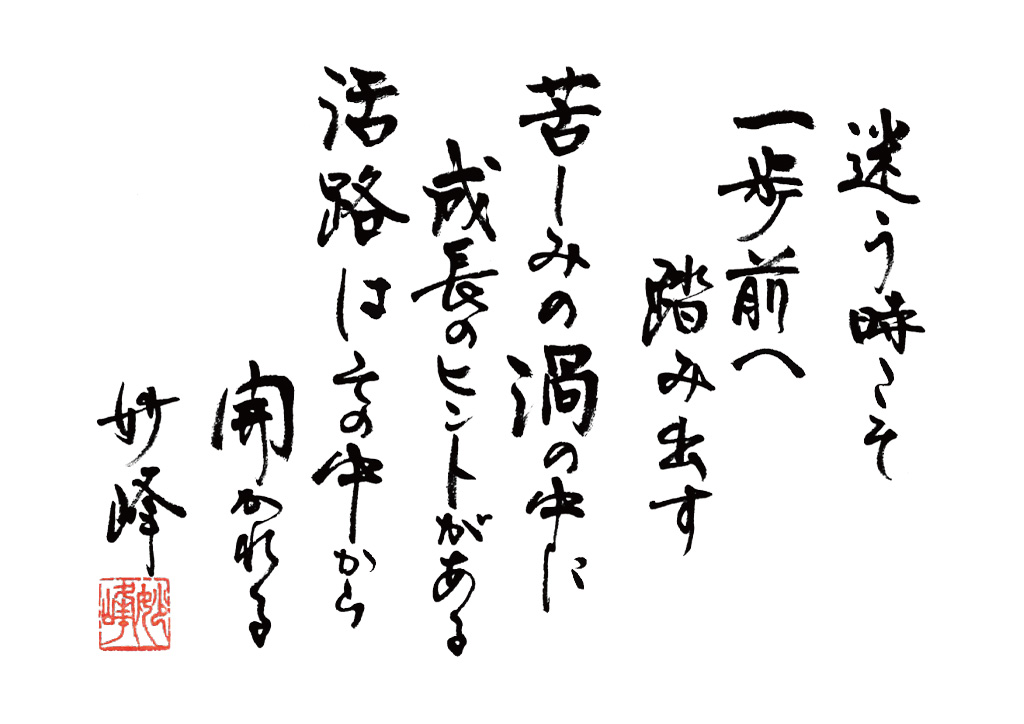 迷う時こそ
一歩前へ
踏み出す
苦しみの渦の中に
成長のヒントがある
活路はその中から
開かれる
妙峰
妙峰